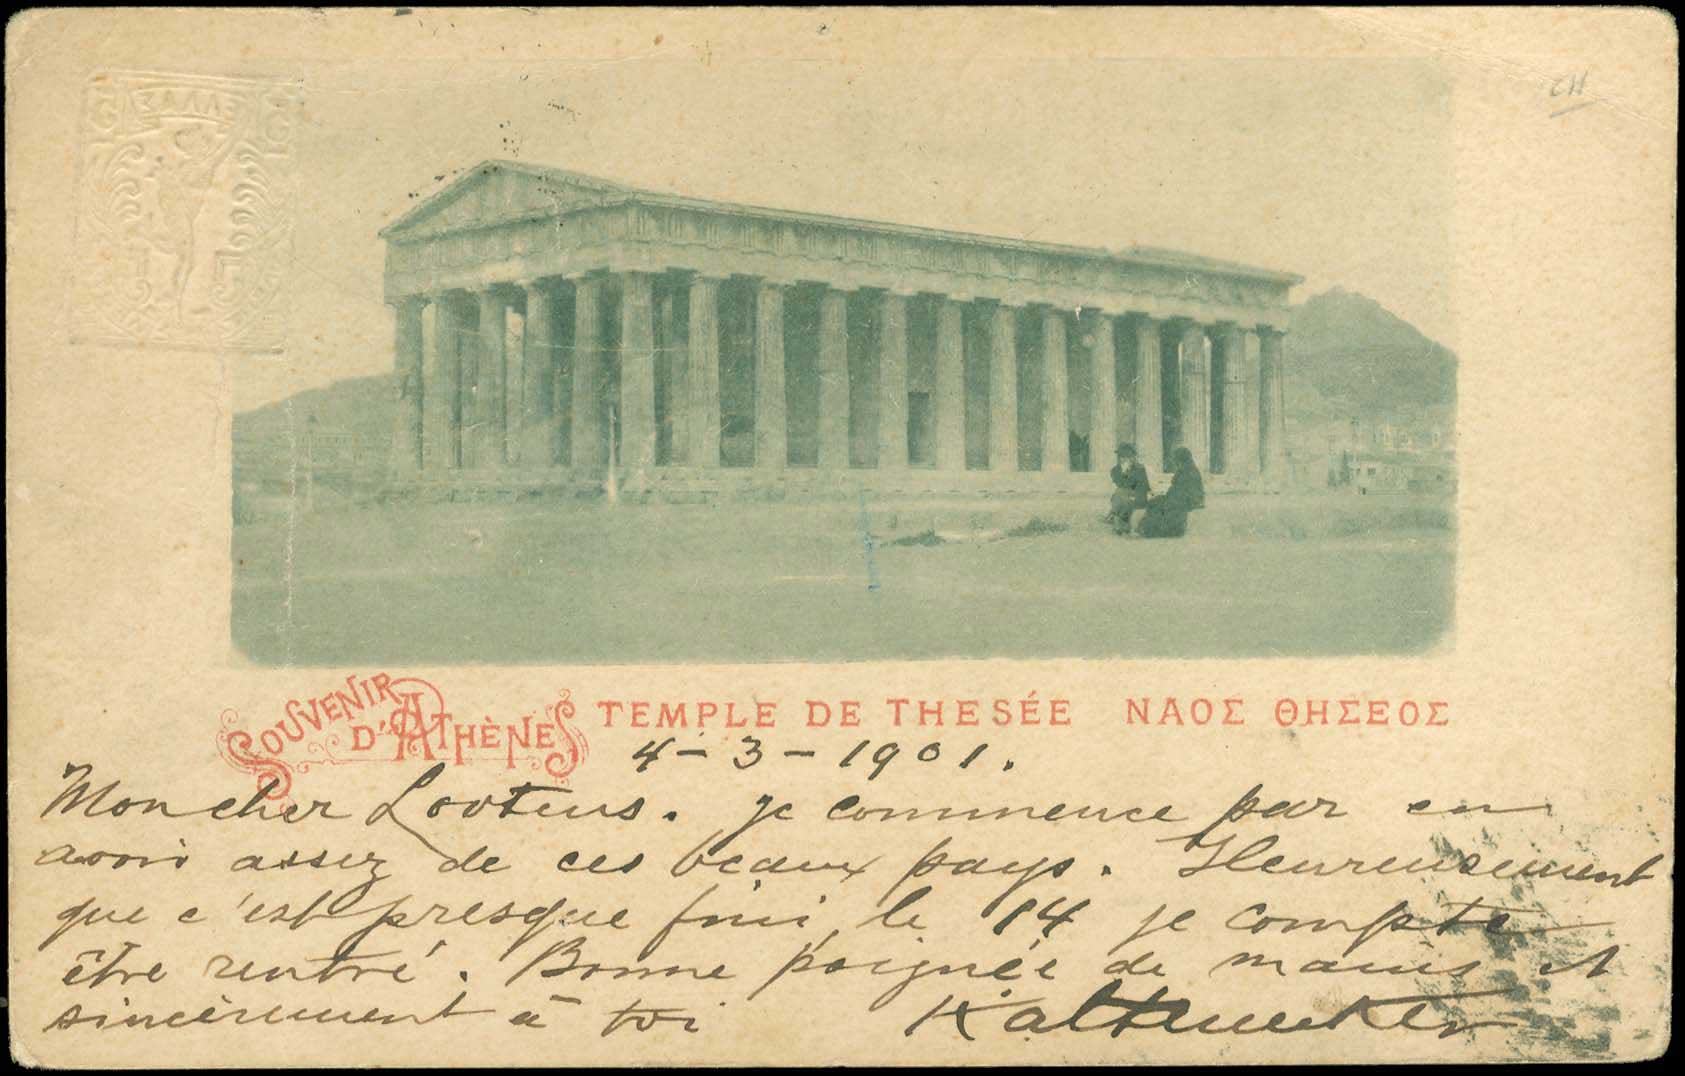 CH
SOUVENIR D'ATHÈNES
TEMPLE DE THESÉE ΝΑΟΣ ΘΗΣΕΟΣ
4-3-1901.
Mon cher Lootens. Je commence par en
avoir assez de ces beaux pays. Heureusement
que c'est presque fini, le 14 je compte
être rentré. Bonne poignée de mains et
sincèrement à toi